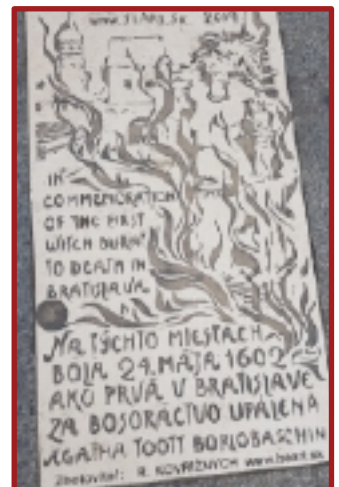 2009
IN
COMMEMORATION
OF THE FIRST
WITCH BURNT
TO DEATH IN
BRATISLAVA
NA TÝCHTO MIESTACH
BOLA 24. MÁJA 1602
AKO PRVÁ V BRATISLAVE
ZA BOSORÁCTVO UPÁLENÁ
AGATHA TOOTT BORLOBASCHIN
Zhotoviteľ: R. KOVRIŽNYCH